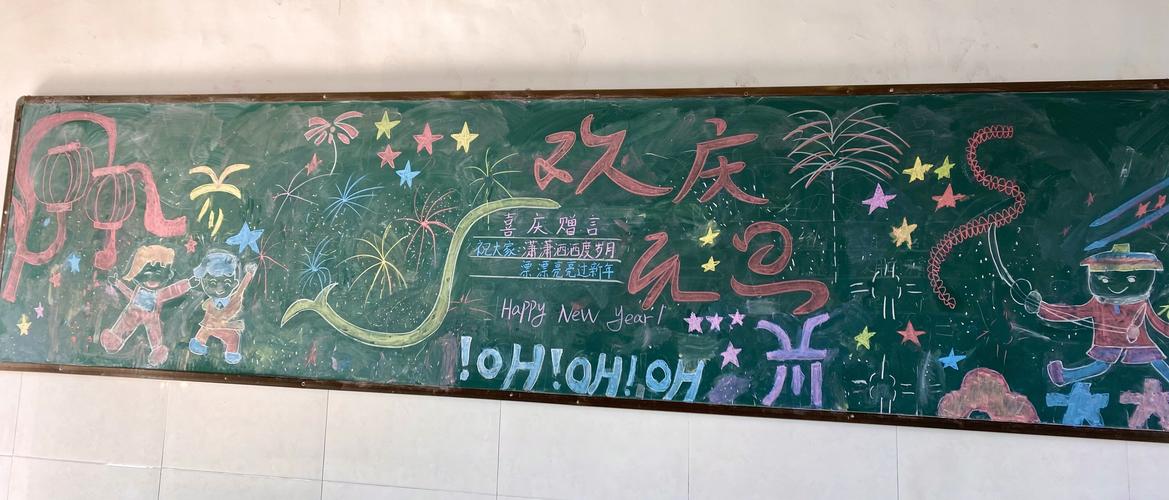 欢庆
元旦
喜庆赠言
祝大家:潇潇洒洒度岁月
漂漂亮亮过新年
Happy New year!
!OH!OH!OH